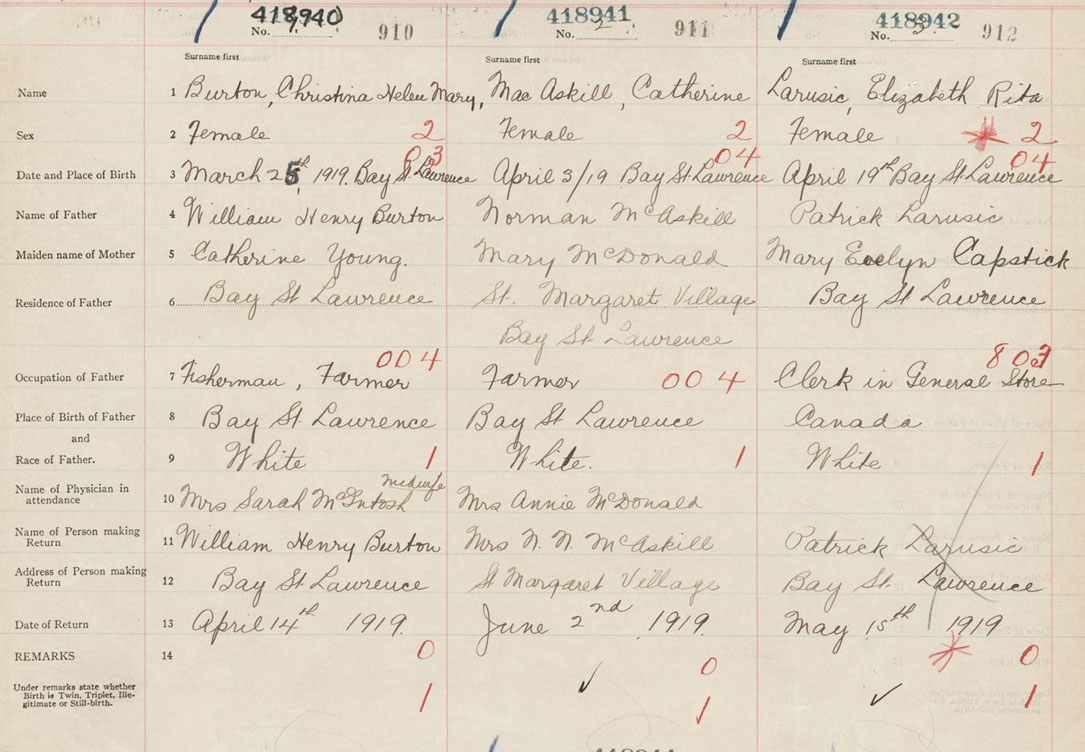 418940 418941 418942
No. 1 910 No. 2 911 No. 3 912
Surname first Surname first Surname first
Name 1 Burton, Christina Helen Mary, Mac Askill, Catherine Larusic, Elizabeth Rita
Sex 2 Female 2 Female 2 Female 2
03 04 04
Date and Place of Birth 3 March 25th, 1919. Bay St. Lawrence April 3/19 Bay St Lawrence April 19th Bay St Lawrence
Name of Father 4 William Henry Burton Norman McAskill Patrick Larusic
Maiden name of Mother 5 Catherine Young. Mary McDonald Mary Evelyn Capstick
Residence of Father 6 Bay St Lawrence St. Margaret Village Bay St Lawrence
Bay St Lawrence
004 803
Occupation of Father 7 Fisherman, Farmer Farmer 004 Clerk in General Store
Place of Birth of Father 8 Bay St Lawrence Bay St Lawrence Canada
and
Race of Father. 9 White 1 White. 1 White 1
midwife
Name of Physician in
attendance 10 Mrs Sarah McIntosh Mrs Annie McDonald
Name of Person making
Return 11 William Henry Burton Mrs N. N. McAskill Patrick Larusic
Address of Person making
Return 12 Bay St Lawrence St Margaret Village Bay St. Lawrence
Date of Return 13 April 14th 1919. June 2nd 1919. May 15th 1919
REMARKS 14 0 0 0
Under remarks state whether
Birth is Twin, Triplet, Ille-
gitimate or Still-birth. 1 1 1